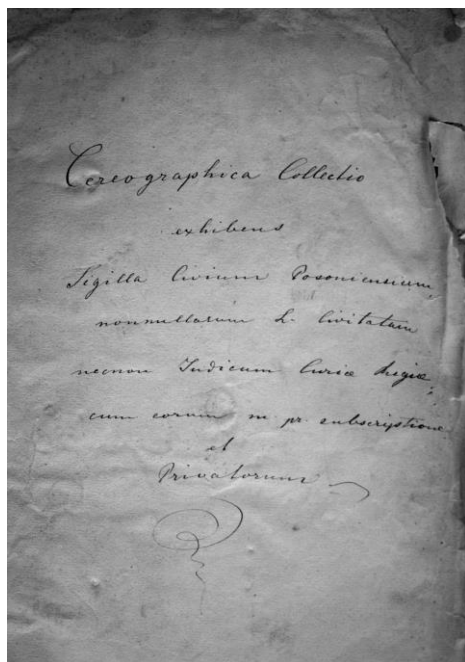 Cereographica Collectio
exhibens
Sigilla Civium Posoniensium,
nonnullarum L. Civitatum
necnon Judicum Curiæ Regiæ
cum eorum m. pr. subscriptione
et
Privatorum